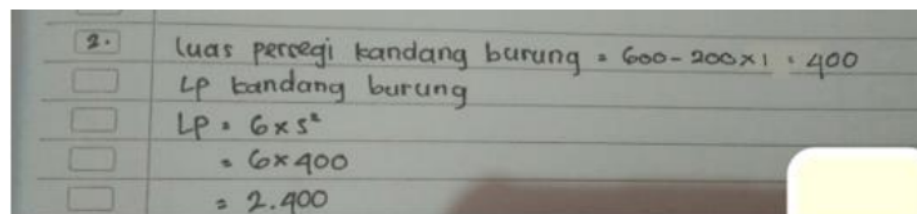 2. luas persegi kandang burung = 600 - 200 x 1 = 400
Lp kandang burung
LP = 6 x s²
= 6 x 400
= 2.400